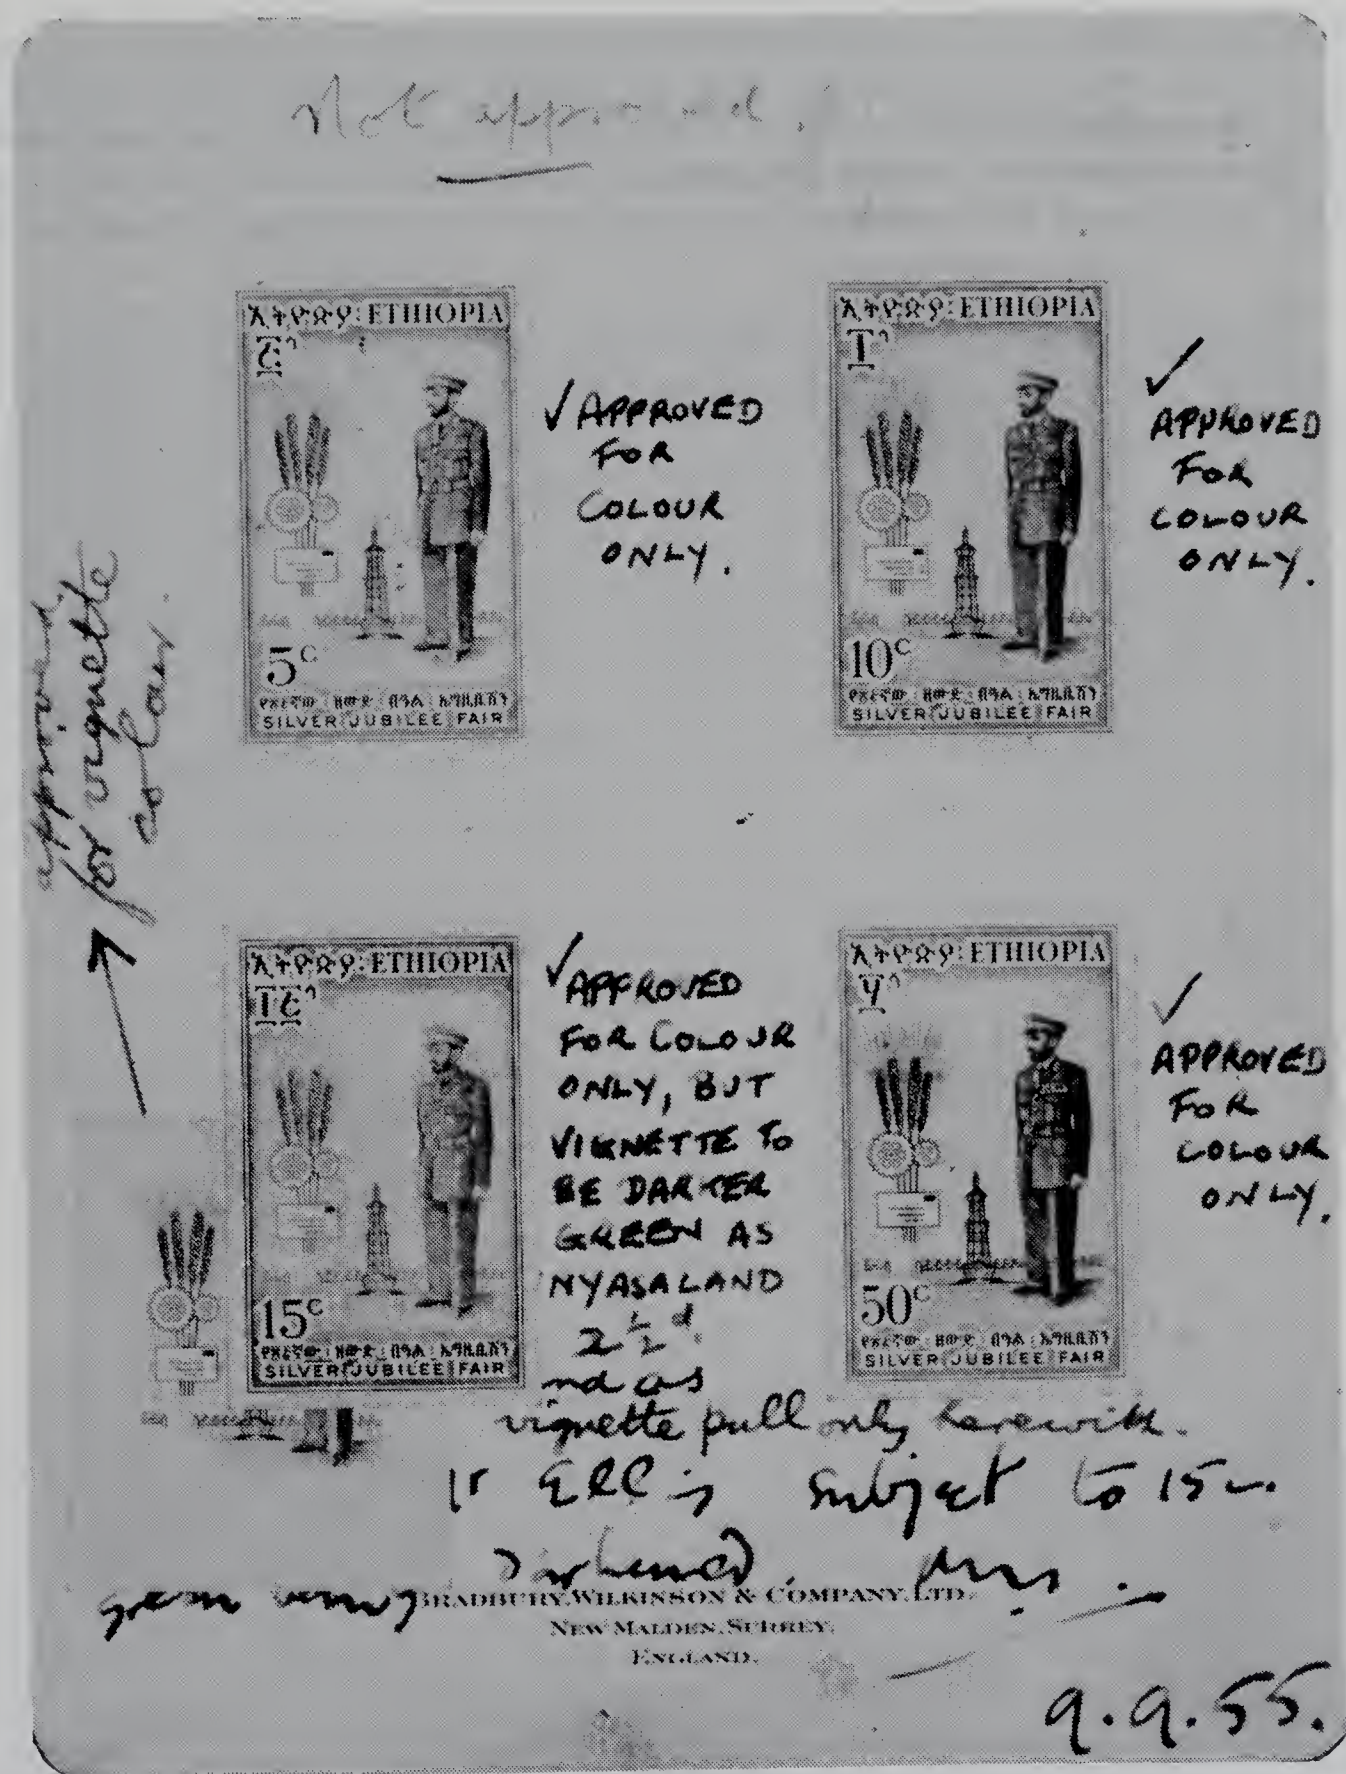 Not approved.
ኢትዮጵያ፡ETHIOPIA
፭ሳ
5c
SILVER JUBILEE FAIR
✓ APPROVED
FOR
COLOUR
ONLY.
ኢትዮጵያ፡ETHIOPIA
፲ሳ
10c
SILVER JUBILEE FAIR
✓
APPROVED
FOR
COLOUR
ONLY.
approved
for vignette
colour.
ኢትዮጵያ፡ETHIOPIA
፲፭ሳ
15c
SILVER JUBILEE FAIR
✓ APPROVED
FOR COLOUR
ONLY, BUT
VIGNETTE TO
BE DARKER
GREEN AS
NYASALAND
2½d.
nd as
vignette pull only herewith.
ኢትዮጵያ፡ETHIOPIA
፶ሳ
50c
SILVER JUBILEE FAIR
✓
APPROVED
FOR
COLOUR
ONLY.
subject to 15c.
green
Darkened.
BRADBURY, WILKINSON & COMPANY, LTD.
NEW MALDEN, SURREY.
ENGLAND.
9.9.55.